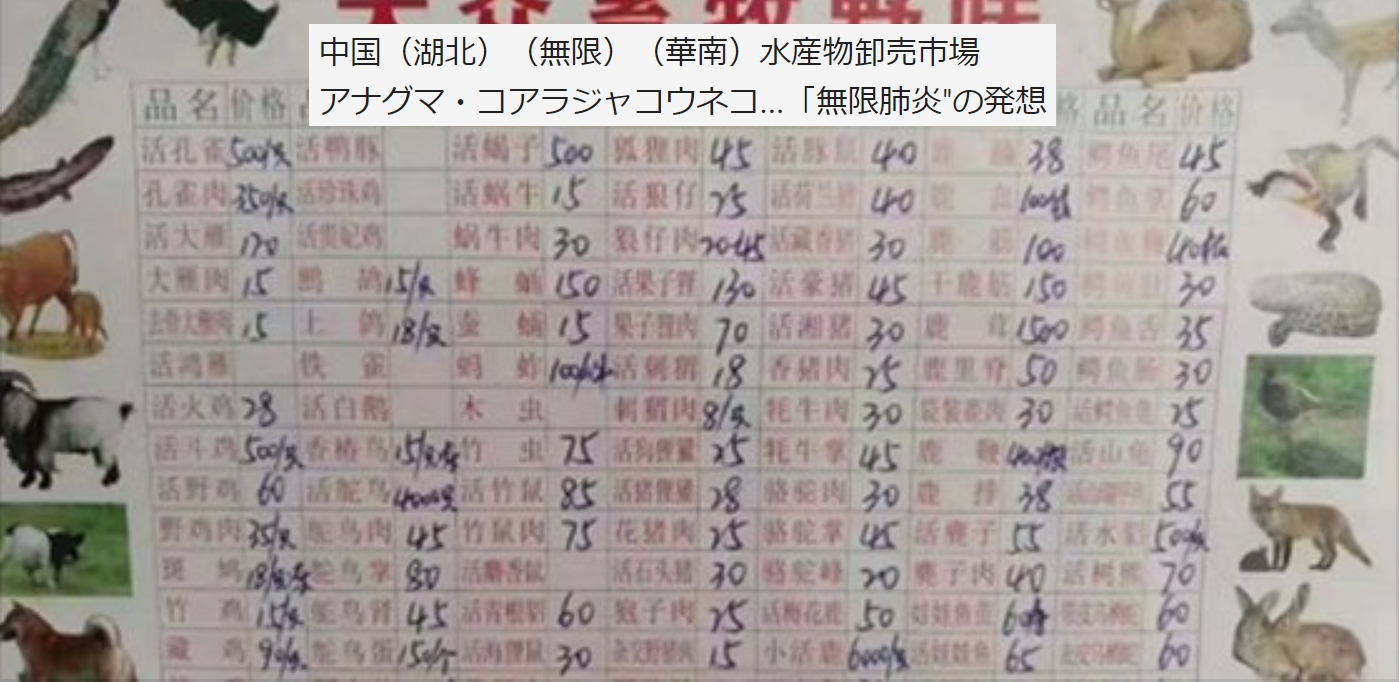 大众畜牧野味
中国（湖北）（無限）（華南）水産物卸売市場
アナグマ・コアラジャコウネコ...「無限肺炎"の発想
品名 价格 品名 价格
活孔雀 500/只 活鸭豚 活蝎子 500 狐狸肉 45 活豚鼠 40 鹿 38 鳄鱼尾 45
孔雀肉 350/只 活珍珠鸡 活蜗牛 15 活狼仔 25 活荷兰猪 40 鹿血 鳄鱼掌 60
活大雁 170 活贵妃鸡 蜗牛肉 30 狼仔肉 活藏香猪 30 鹿筋 100 鳄鱼
大雁肉 15 鹧鸪 15/只 蜂蛹 150 活果子狸 130 活豪猪 45 干鹿筋 150 鳄鱼肚 30
去骨大雁肉 15 土鸽 18/只 蚕蛹 15 果子狸肉 70 活湘猪 30 鹿茸 1500 鳄鱼舌 35
活鸿雁 铁雀 蚂蚱 活刺猬 18 香猪肉 25 鹿里脊 50 鳄鱼肠 30
活火鸡 28 活白鹅 木虫 刺猬肉 8/只 牦牛肉 30 袋装鹿肉 30 活鳄鱼龟 25
活斗鸡 500/只 香椿鸟 竹虫 75 活狗狸獾 25 牦牛掌 45 鹿鞭 活山龟 90
活野鸡 60 活鸵鸟 4000/只 活竹鼠 85 活猪狸獾 28 骆驼肉 30 鹿排 38 55
野鸡肉 35/只 鸵鸟肉 45 竹鼠肉 75 花猪肉 25 骆驼掌 45 活麂子 55 活水貂 500/只
斑鸠 鸵鸟掌 80 活麝香鼠 活石头猪 30 骆驼峰 20 麂子肉 40 活树熊 70
竹鸡 15/只 鸵鸟肾 45 活青根貂 60 狍子肉 25 活梅花鹿 50 娃娃鱼苗 60
藏鸡 90/只 鸵鸟蛋 150/个 活海狸鼠 30 杂交野猪肉 15 小活鹿 6000/只 活娃娃鱼 65 60